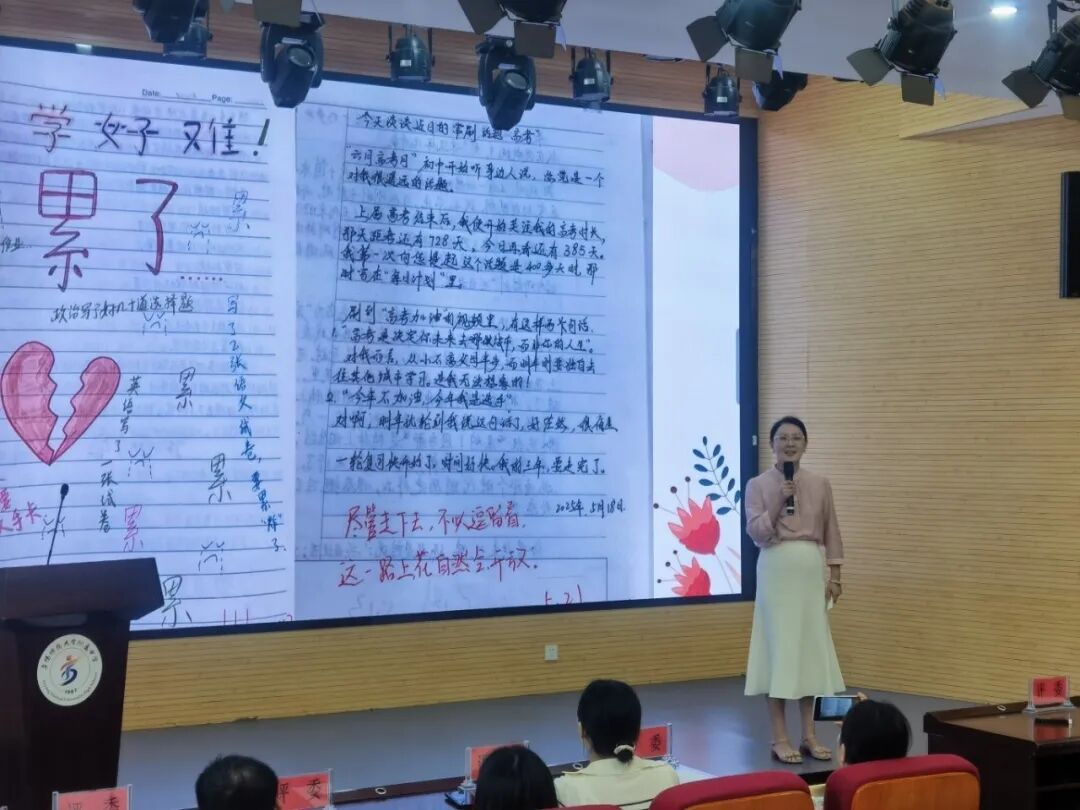 Date:
Page:
学好难!
累了……
累
政治写了好几十道选择题
写了2张语文试卷,要累"阵"了
英语写了一张试卷
累
累
累
累
今天谈谈近日的常刷话题"高考"。
"六月高考月"初中开始听身边人说,总觉是一个
对我很遥远的话题。
上届高考结束后,我便开始关注我的高考时长,
那天距考还有728天,今日再看还有385天。
我第一次向您提起这个话题是400多天时,那
时写在"每日计划"里。
刷到"高考加油的视频里,有这样两条句话,
1."高考是决定你未来去哪做城市,而非你的人生"。
对我而言,从小不离父母半步,而明年则要独自去
往其他城市学习。是我无法想象的!
2."今年不加油,今年我是选手"
对啊,明年就轮到我说这句话了,好茫然,很焦虑
一轮复习快开始了,时间好快。我的三年,要走完了。
2025年5月18日
尽管走下去,不必逗留着,
这一路上花自然会开放。
5.21
评委
评委
评委